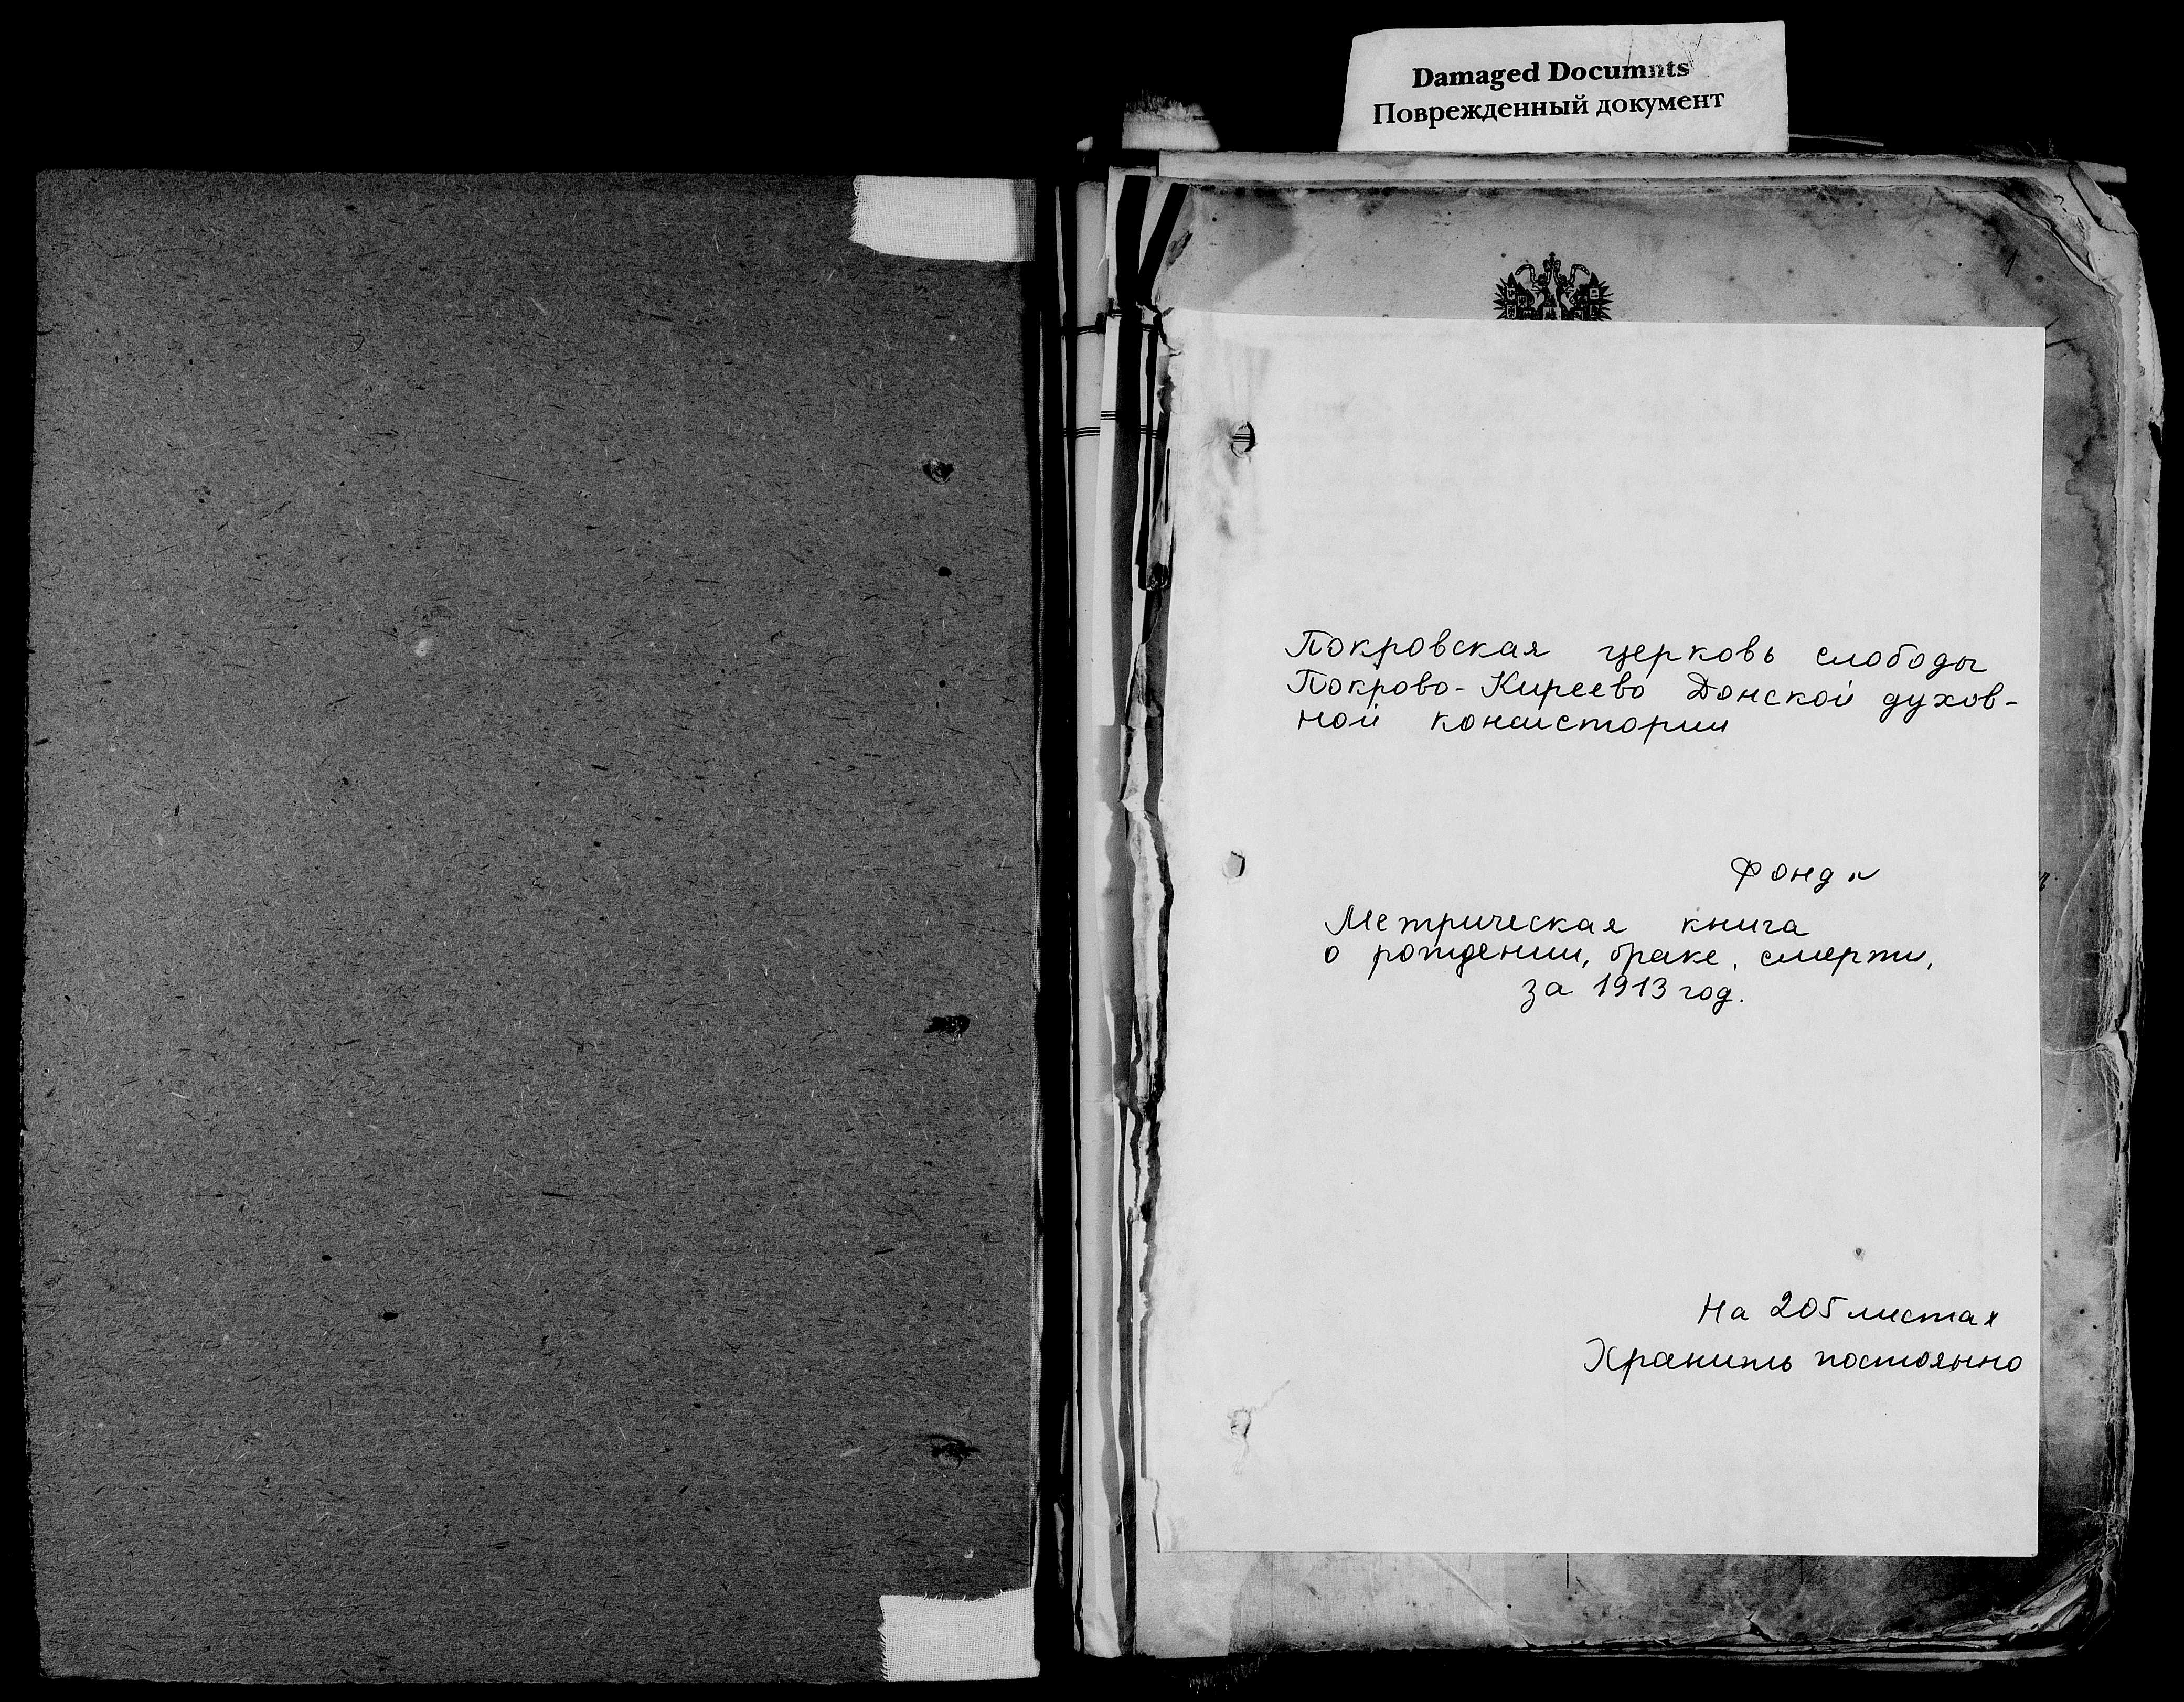 Damaged Documnts
Поврежденный документ
1
Покровская церковь слободы
Покрово-Киреево Донской духов-
ной консистории
Фонд №
Метрическая книга
о рождении, браке, смерти,
за 1913 год.
На 205 листах
Хранить постоянно